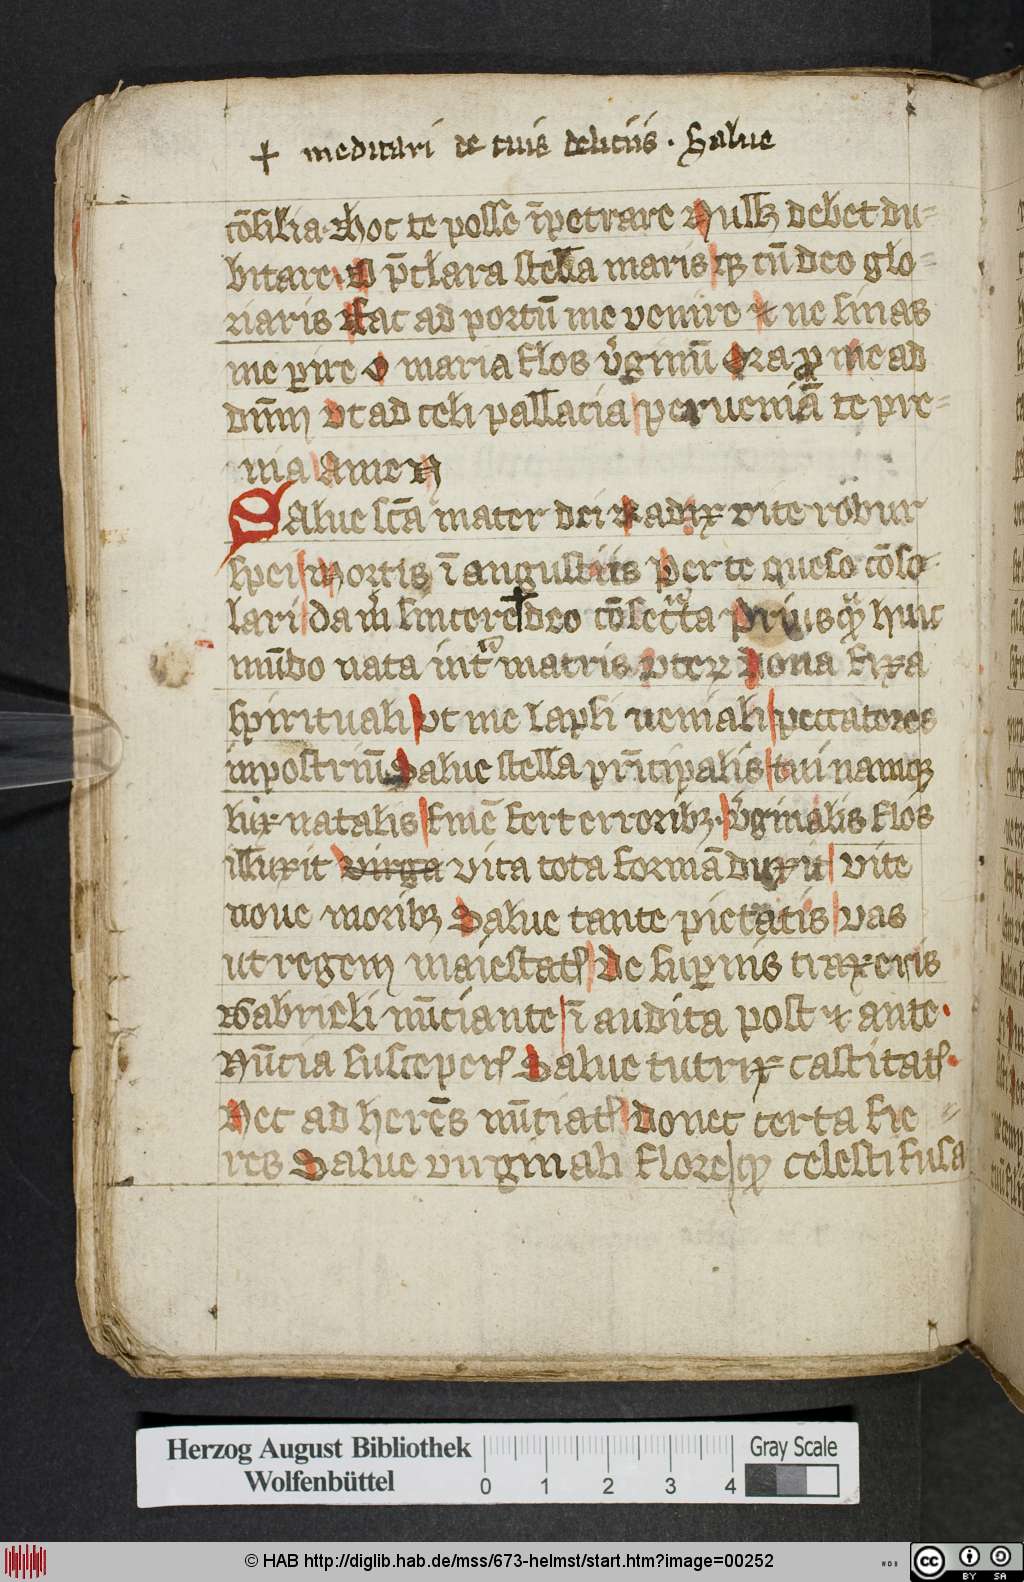 + meditari de tuis deliciis · Salue
cōsilia · Hoc te posse īpetrare Nullꝫ debet du=
bitare O p̄clara stella maris qꝫ cū deo glo=
riaris Fac ad portū me venire ⁊ ne sinas
me ꝑire O maria flos v̓ginū Ora ꝓ me ad
dnm̄ vt ad celi pallacia perueniā te pre=
uia Amen
Salue sc̄a mater dei Radix vite robur
spei Mortis ī angustiis Per te queso cōso-
lari Da m̓ sincere + deo cōsecᷓta Priusqꝫ huic
mūdo nata intᷓ matris vterꝫ Dona fixa
spirituali vt me lapsi veniali peccatores
inpostrimū Salue stella prīcipalis tui namqꝫ
lux natalis finē fert erroribꝫ · v̓ginalis flos
illuxit virga vita tota formā duxit vite
noue moribꝫ Salue tante pietatis vas
ut regem maiestatꝭ De suꝑnis traxeris
Gabrieli nūciante ī audita post ⁊ ante ·
Nūcia susceperꝭ Salue tutrix castitatꝭ ·
Nec ad herēs nūciatꝭ donec certa fie =
res Salue virginali flore qꝫ celesti fusa
Herzog August Bibliothek
Wolfenbüttel
0 1 2 3 4
Gray Scale
© HAB http://diglib.hab.de/mss/673-helmst/start.htm?image=00252
WDB
cc BY SA